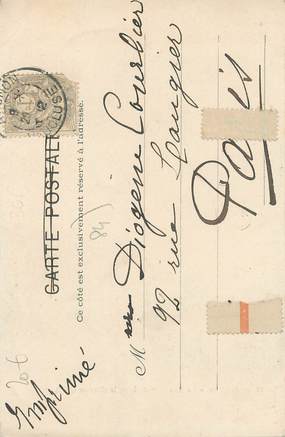 Imprimé
CARTE POSTALE
Ce côté est exclusivement réservé à l'adresse.
M Diogène Courbier
92 rue Laugier
Paris
84